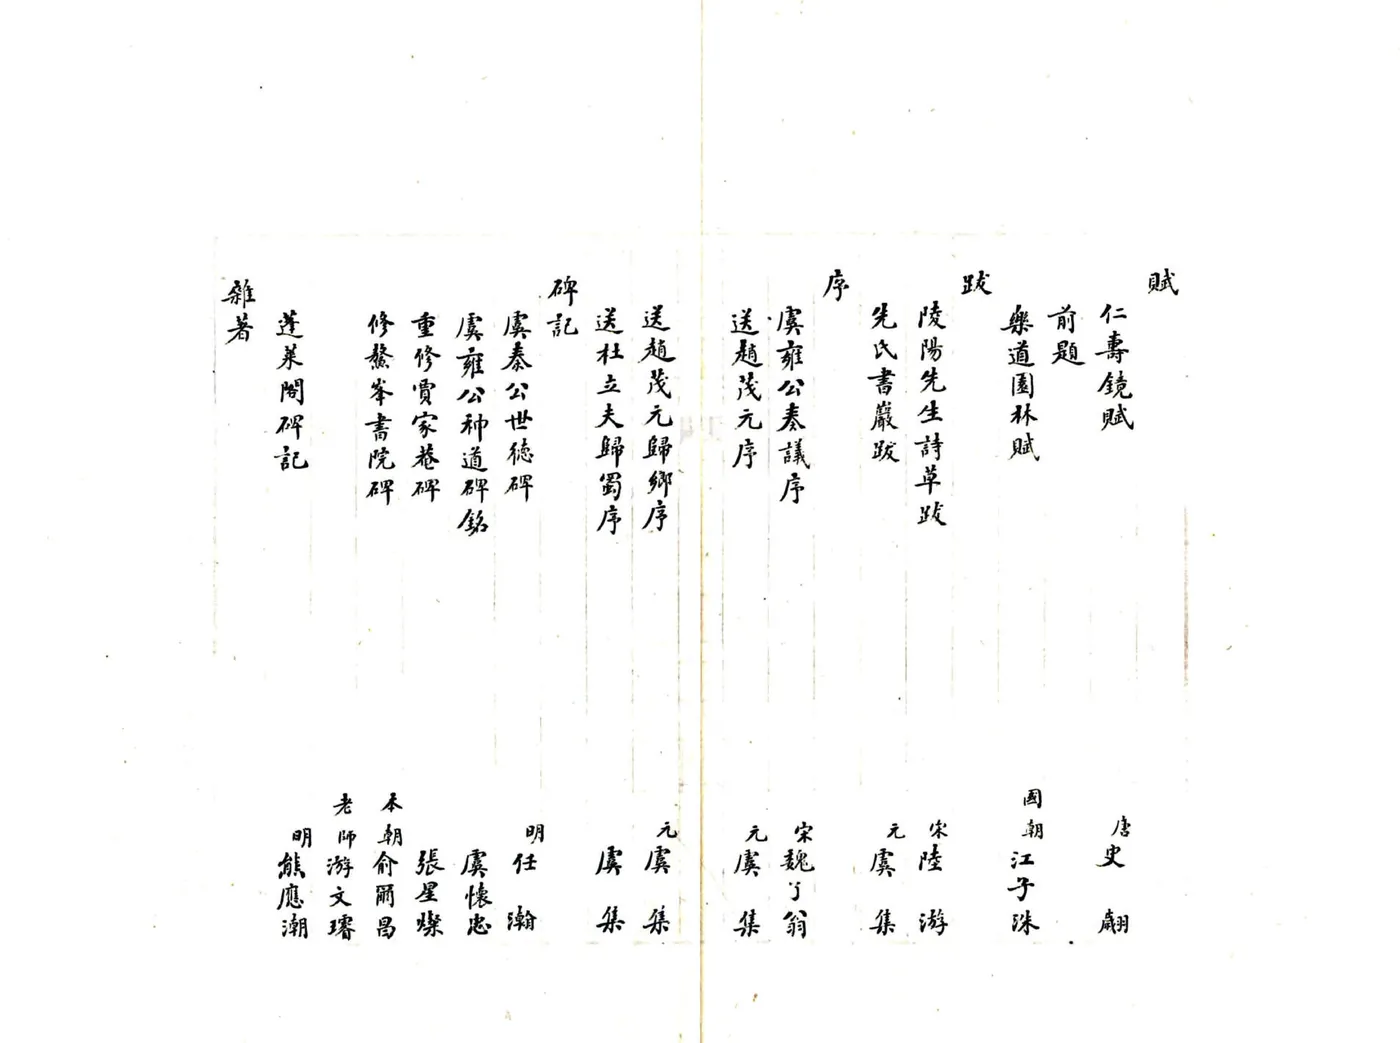 賦
仁壽鏡賦 唐史翽
前題
樂道園林賦 國朝江子洙
跋
陵陽先生詩草跋 宋陸游
先氏書巖跋 元虞集
序
虞雍公奏議序 宋魏了翁
送趙茂元序 元虞集
送趙茂元歸鄉序 元虞集
送杜立夫歸蜀序 虞集
碑記
虞秦公世德碑 明任瀚
虞雍公神道碑銘 虞懷忠
重修賈家菴碑 張星燦
修鰲峯書院碑 本朝俞爾昌
老師游文璿
蓬萊閣碑記 明熊應潮
雜著